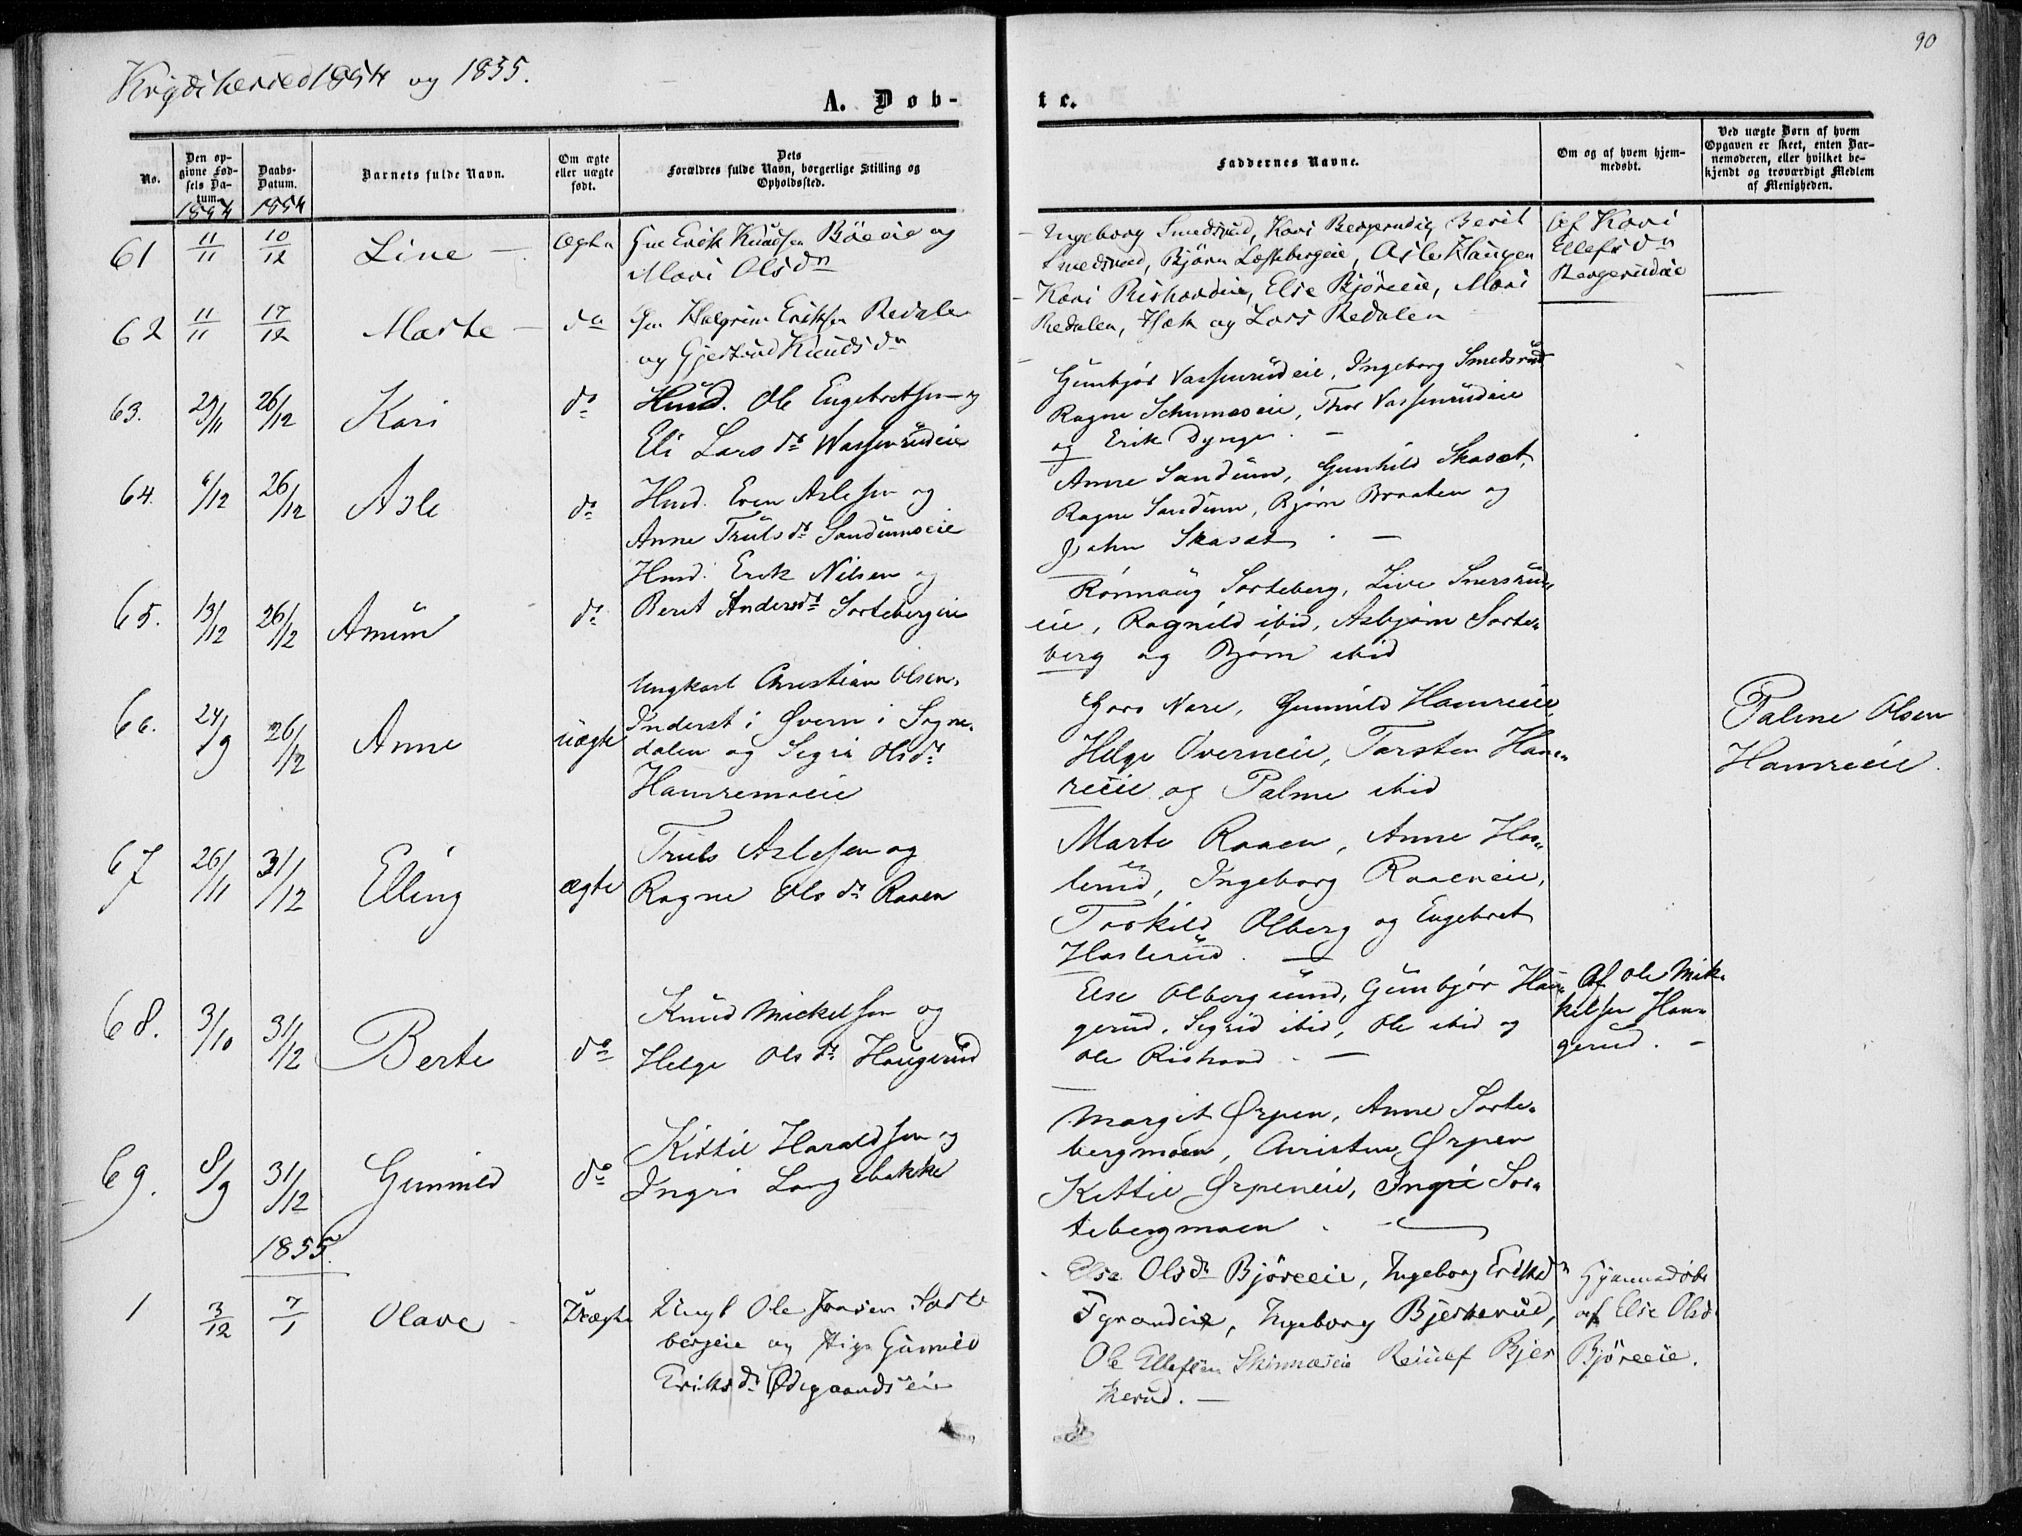 Krydsherred 1854 og 1855.
90
A. Døb-
te.
No.
Den op-
givne Fød-
sels Da-
tum.
1854
Daabs-
Datum.
1854
Barnets fulde Navn.
Om ægte
eller uægte
født.
Dets
Forældres fulde Navn, borgerlige Stilling og
Opholdssted.
Faddernes Navne.
Om og af hvem hjem-
medøbt.
Ved uægte Børn af hvem
Opgaven er skeet, enten Bar-
nemoderen, eller hvilket be-
kjendt og troværdigt Medlem
af Menigheden.
61
11/11
10/12
Live
Ægte
Erik Knudsen Böeeie og
Mari Olsdr
Ingeborg Smedsrud, Kari Bergerudeie, Berit
Smedsrud, Björn Leftebergeie, Asle Haugen
Af Kari
Ellefsdr
Bergerudeie
62
11/11
17/12
Marte
do
Halgrim Eriksen Redale
og Gjertrud Knudsdr
Kari Rishovdeie, Else Björeeie, Mari
Redalen, og Lars Redalen
63.
29/11
26/12
Kari
do
Husd. Ole Engebretsen og
Eli Larsdr Wassenrudeie
Gunbjør Vassenrudeie, Ingeborg Smedsrud
Ragne Schumaseie, Thor Vassenrudeie
og Erik Dynge. —
64.
6/12
26/12
Asle
do
Husd. Even Aslesen og
Anne Trulsdr Sandumseie
Anne Sandum, Gunhild Skaset,
Ragne Sandum, Bjørn Braaten og
John Skaset. —
65.
13/12
26/12
Amun
do
Husd. Erik Nilsen og
Berit Andersdr Sortebergeie
Rønnaug Sorteberg, Live Snersrud-
eie, Ragnild ibid, Asbjørn Sorte-
berg og Bjørn ibid
66.
24/9
26/12
Anne
uægte
Ungkarl Christian Olsen,
Inderst i Øvern i Sogne-
dalen og Segri Olsdr
Hamremoeie
Goro Nare, Gunnild Hamreeie,
Helge Overneie, Tarsten Ham-
reeie og Palme ibid
Palme Olsen
Hamreeie.
67
26/11
31/12
Elling
ægte
Truls Aslesen og
Ragne Olsdr Raaen
Marte Raaen, Anne Has-
lerud, Ingeborg Raaeneie,
Torkild Olberg og Engebret
Haslerud. —
68.
3/10
31/12
Berte
do
Knud Mickelsen og
Helge Olsdr Haugerud
Else Olbergsund, Gunbjør Hau-
gerud, Segrid ibid, Ole ibid og
Ole Rishovd. —
Af Ole Mik-
kelsen Hau-
gerud. —
69.
8/9
31/12
Gunnild
do
Kittil Haraldsen og
Ingri Langebakke
Margit Ørpen, Anne Sorte-
bergmoen, Christen Ørpen
Kittil Ørpeneie, Ingri Sor-
tebergmoen. —
1855.
1
3/12
7/1
Olave
Uægte
Ungk Ole Sorte-
bergeie og Pige Gunnild
Eriksdr Ødegaardseie
Else Olsdr Björeeie, Ingeborg Eriksdr
Ingeborg Bjerkerud,
Ole Ellefsen Skinnæseie Bjer-
kerud. —
Hjemmedøbt
af Else Olsdr
Björeeie.